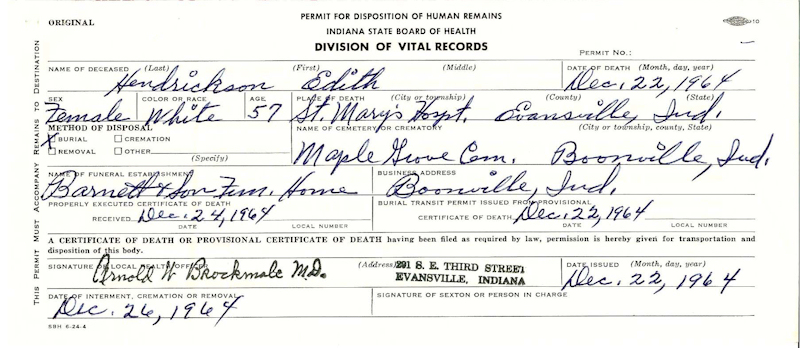 ORIGINAL
PERMIT FOR DISPOSITION OF HUMAN REMAINS
INDIANA STATE BOARD OF HEALTH
DIVISION OF VITAL RECORDS
PERMIT NO.:
THIS PERMIT MUST ACCOMPANY REMAINS TO DESTINATION
NAME OF DECEASED (Last) (First) (Middle) DATE OF DEATH (Month, day, year)
Hendrickson Edith Dec. 22, 1964
SEX COLOR OR RACE AGE PLACE OF DEATH (City or township) (County) (State)
Female White 57 St. Mary's Hospt. Evansville, Ind.
METHOD OF DISPOSAL NAME OF CEMETERY OR CREMATORY (City or township, county, State)
X BURIAL ☐ CREMATION
☐ REMOVAL ☐ OTHER
(Specify)
Maple Grove Cem. Boonville, Ind.
NAME OF FUNERAL ESTABLISHMENT BUSINESS ADDRESS
Barnett & Son Fun. Home Boonville, Ind.
PROPERLY EXECUTED CERTIFICATE OF DEATH BURIAL TRANSIT PERMIT ISSUED FROM PROVISIONAL
RECEIVED Dec. 24, 1964 CERTIFICATE OF DEATH Dec. 22, 1964
DATE LOCAL NUMBER DATE LOCAL NUMBER
A CERTIFICATE OF DEATH OR PROVISIONAL CERTIFICATE OF DEATH having been filed as required by law, permission is hereby given for transportation and
disposition of this body.
SIGNATURE OF LOCAL HEALTH OFFICER (Address) DATE ISSUED (Month, day, year)
Arnold W Brockmole M.D. 291 S. E. THIRD STREET Dec. 22, 1964
EVANSVILLE, INDIANA
DATE OF INTERMENT, CREMATION OR REMOVAL SIGNATURE OF SEXTON OR PERSON IN CHARGE
Dec. 26, 1964
SBH 6-24-4